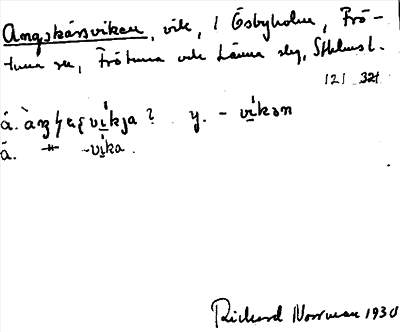 Angskärsviken, vik, i Ösbyholm, Frö-
tuna sn, Frötuna och Länna slg, Sthlms l.
121 321
ä. vìkja? y. - vìkən
ä. -〃- -vìka.
Rickard Norrman 1930